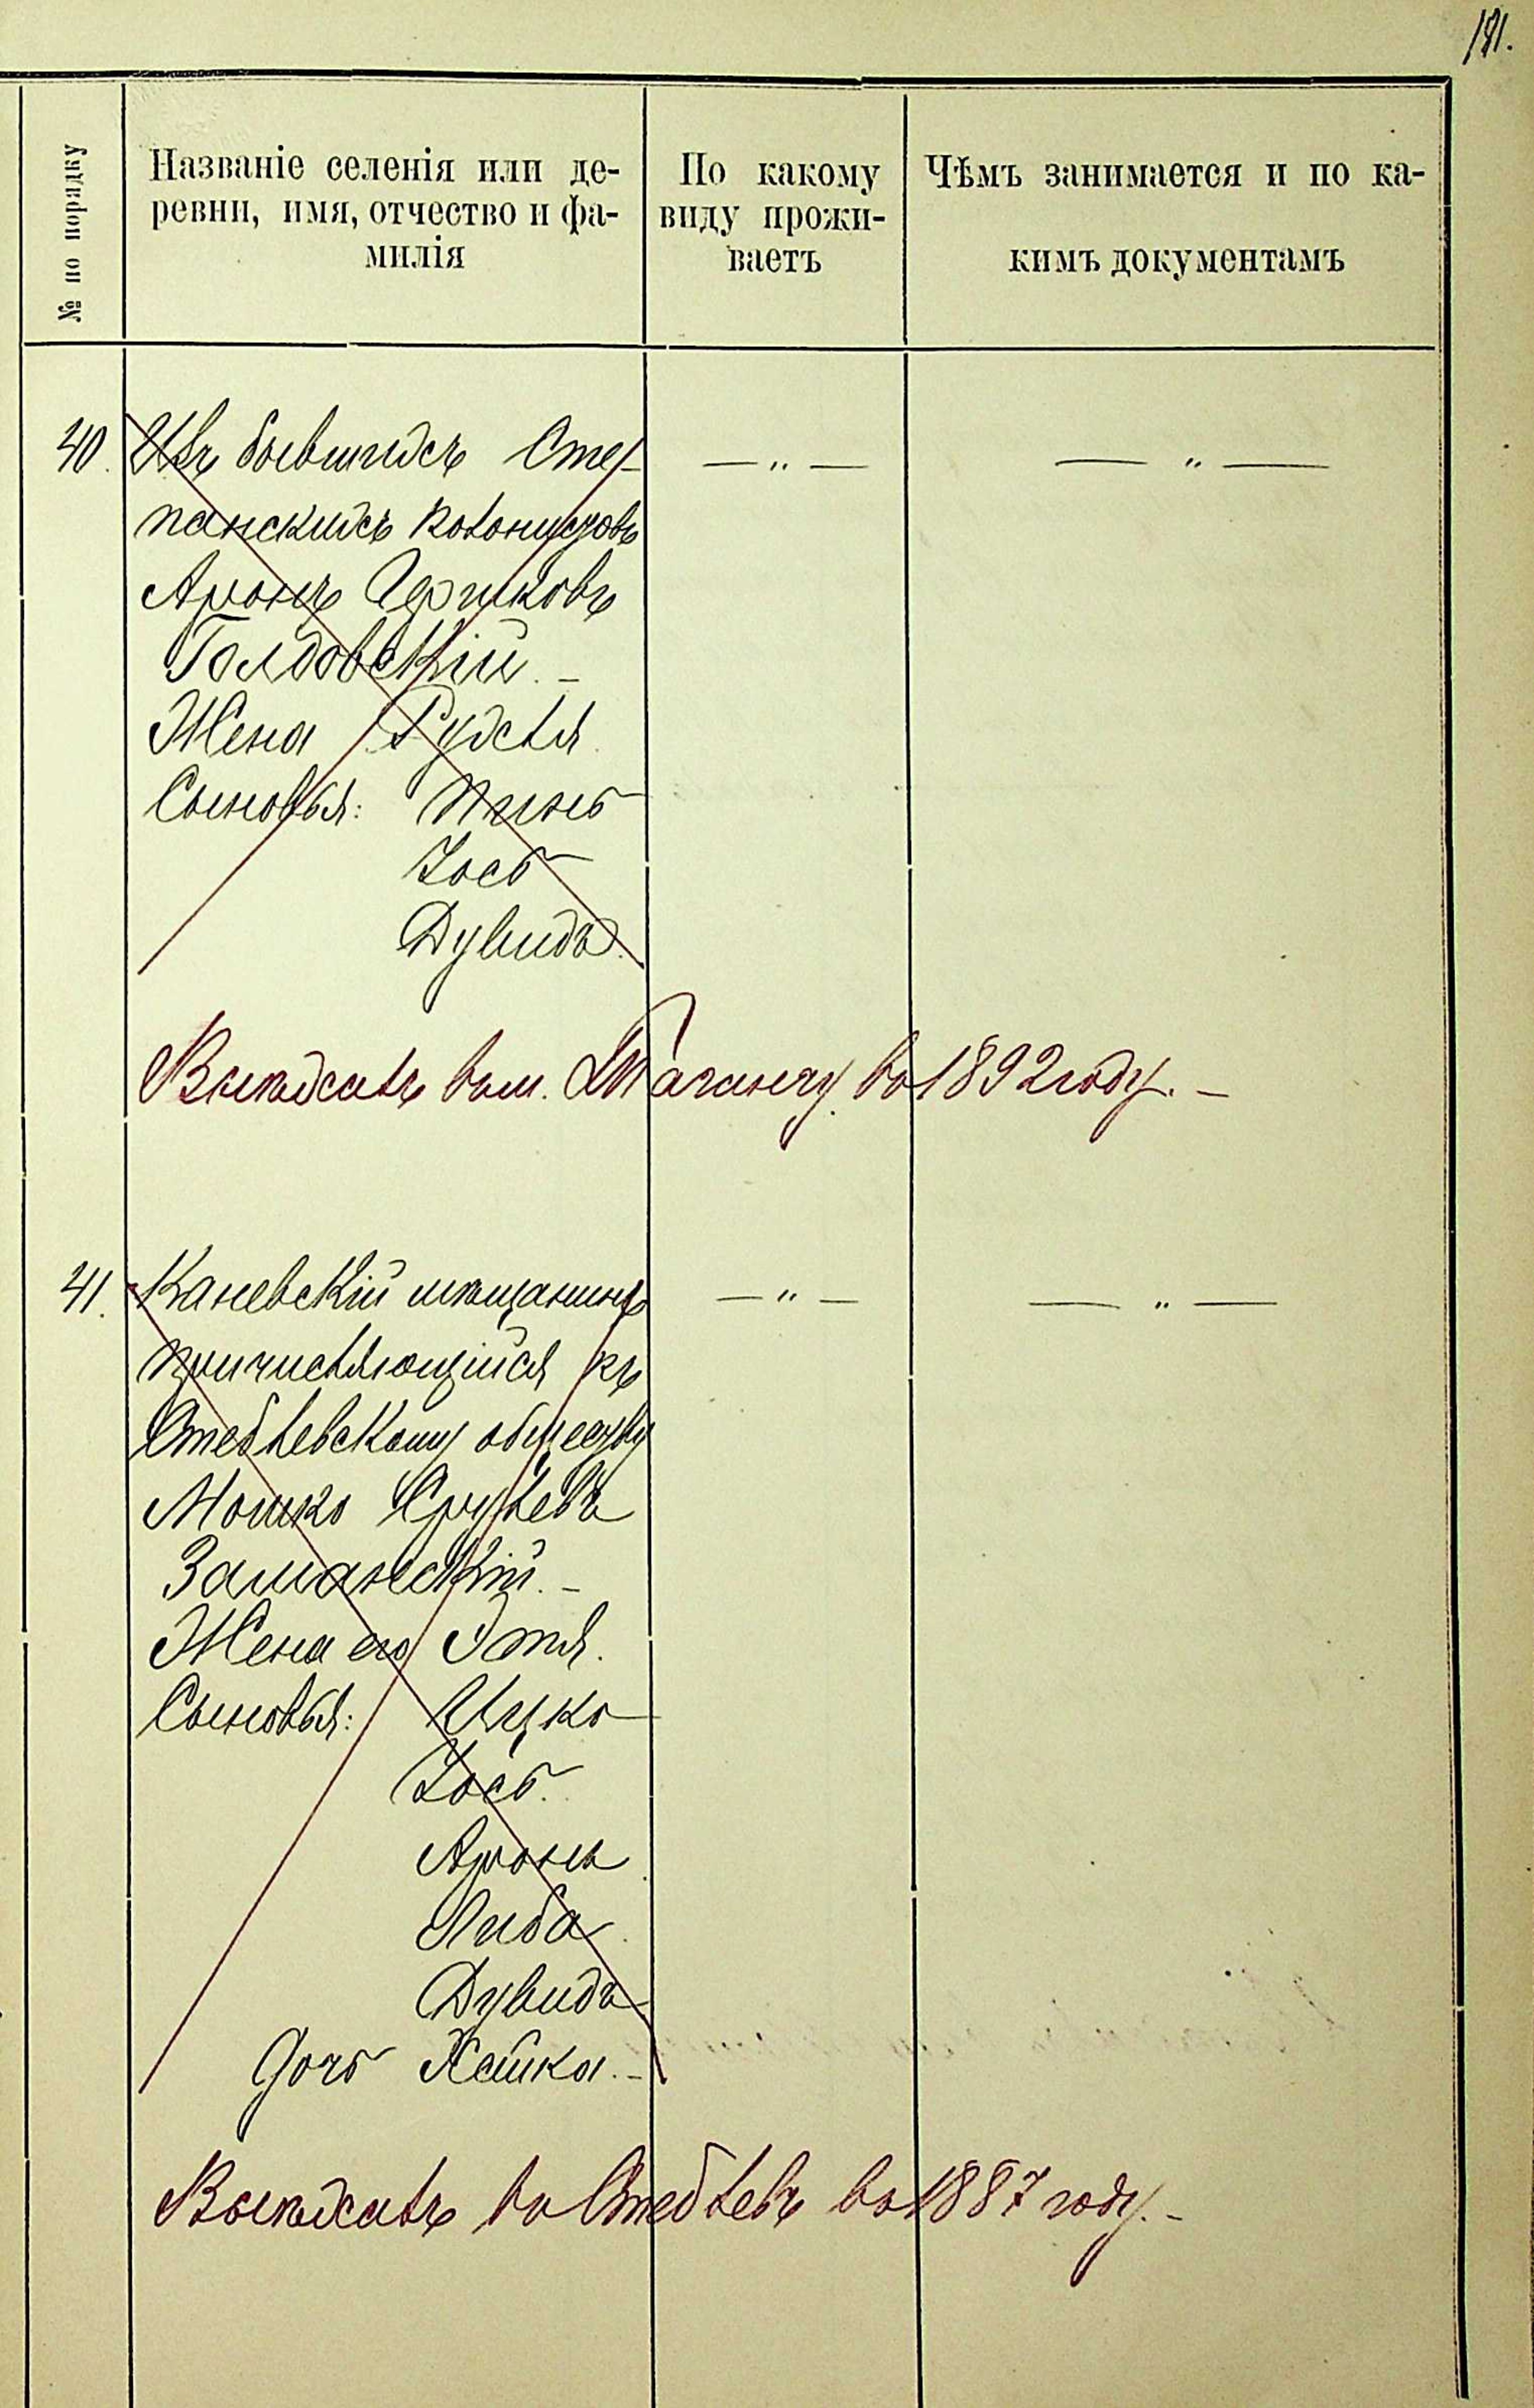 181.
№ по порядку
Названіе селенія или де-
ревни, имя, отчество и фа-
милія
По какому
виду прожи-
ваетъ
Чѣмъ занимается и по ка-
кимъ документамъ
40. Изъ бывшихъ Сте- — „ — — „ —
панскихъ колонистовъ
Аронъ Гершковъ
Голдовскій. -
Жена Рухля
Сыновья: Пинь
Іось
Дувидъ.
Выѣхалъ въ м. Таганчу въ 1892 году. -
41. Каневскій мѣщанинъ — „ — — „ —
причисляющійся къ
Стеблевскому обществу
Мошко Срулевъ
Заманскій. -
Жена его Этя.
Сыновья: Ицко
Іось.
Аронъ
Либа
Дувидъ
Дочь Хайка. -
Выѣхалъ въ Стеблевъ въ 1887 году. -